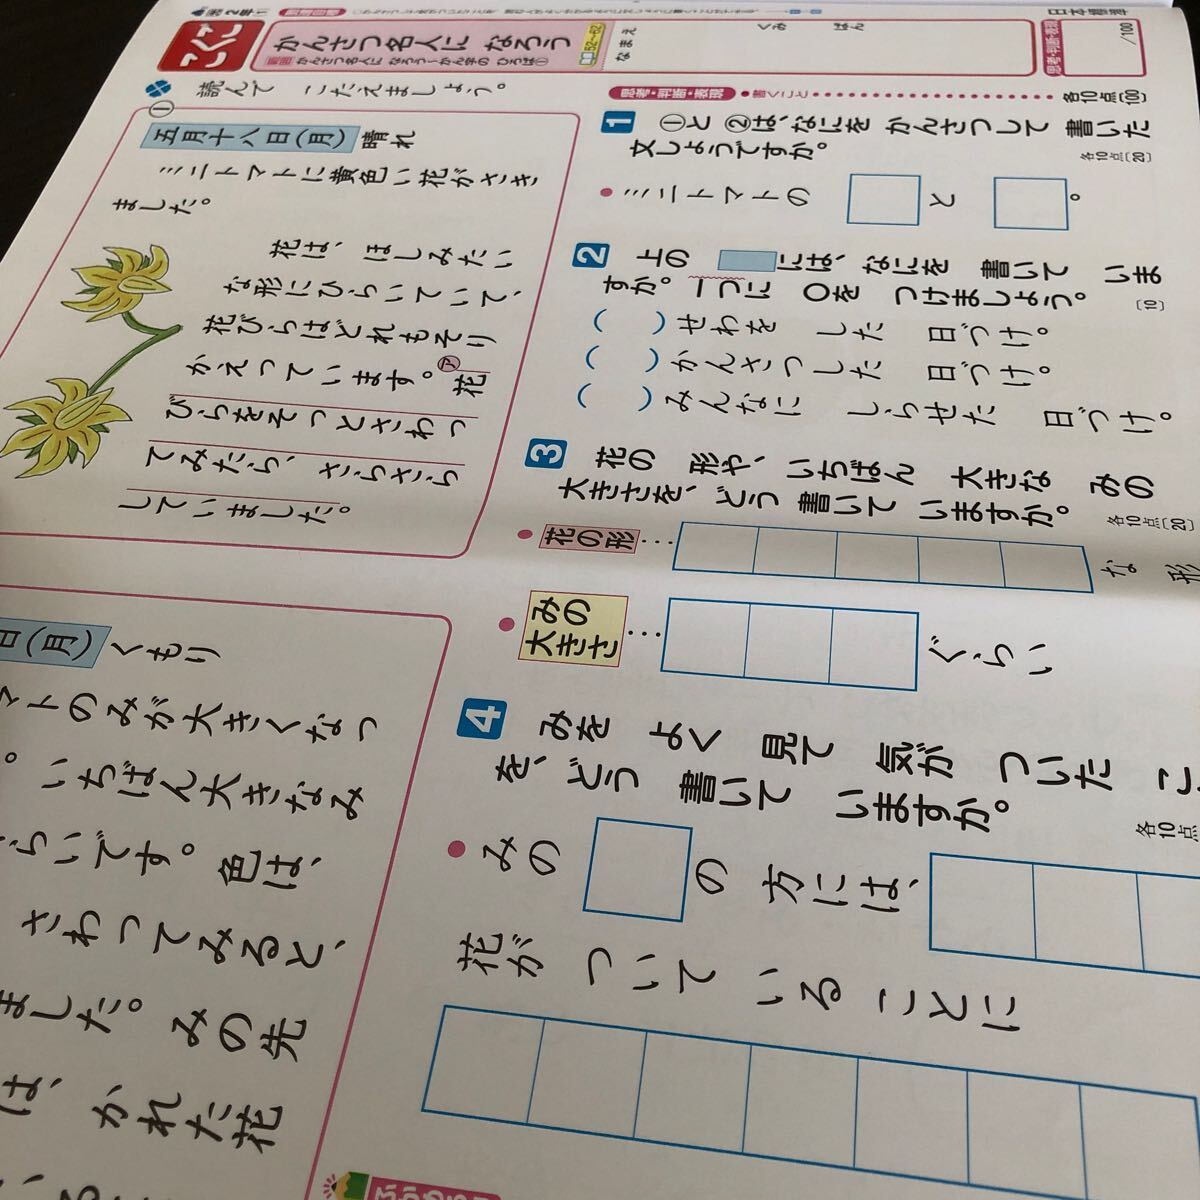 こくご
かんさつ名人に なろう
範囲 かんさつ名人に なろう～かん字の ひろば①
52～62
くみ
ばん
なまえ
思考・判断・表現
/100
日本標準
読んで こたえましょう。
①
五月十八日(月) 晴れ
ミニトマトに黄色い花がさき
ました。
花は、ほしみたい
な形にひらいていて、
花びらはどれもそり
かえっています。㋐花
びらをそっとさわっ
てみたら、さらさら
していました。
日(月) くもり
マトのみが大きくなっ
。いちばん大きなみ
らいです。色は、
さわってみると、
ました。みの先
は、かれた花
思考・判断・表現 ●書くこと 各10点(100)
1 ①と ②は、なにを かんさつして 書いた
文しょうですか。
各10点(20)
●ミニトマトの
と
。
2 上の
には、なにを 書いて いま
すか。一つに ○を つけましょう。
(10)
( )せわを した 日づけ。
( )かんさつした 日づけ。
( )みんなに しらせた 日づけ。
3 花の 形や、いちばん 大きな みの
大きさを、どう 書いて いますか。
各10点(20)
●花の形…
な 形
●みの
大きさ…
ぐらい
4 みを よく 見て 気が ついた こ
を、どう 書いて いますか。
各10点
●みの
の 方には、
花が ついて いる ことに